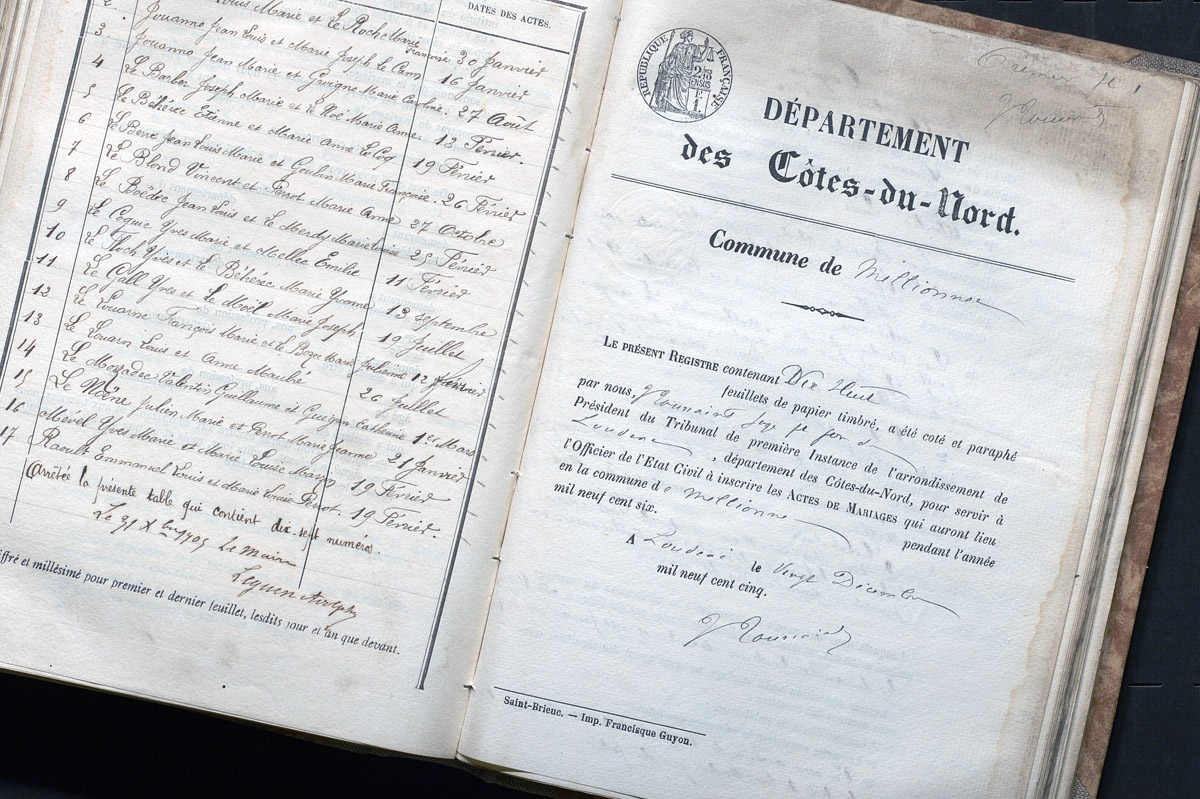 DATES DES ACTES.
2. Louis Marie et Le Ploch Marie Françoise 30 Janvier
3 Jouanno Jean Louis et Marie Joseph Le Cam 16 Janvier
4 Jouanno Jean Marie et Marie Caroline. 27 Août
5 Le Barber Joseph Marie et Le Noé Marie Anne. 13 Février.
6 Le Béhérec Etienne et Marie Anne Le Coq 19 Février
7 Le Bene Jean Louis Marie et Goulin Marie Françoise. 26 Février
8 Le Blond Vincent et Perrot Marie Anne 27 Octobre
9 Le Boëdec Jean Louis et Le Merdy Marie Louise 25 Février
10 Le Coquic Yves Marie et Mellec Emilie 11 Février
11 Le Floch Yves et Le Béhérec Marie Yvonne 13 septembre
12 Le Gall Yves et Le Moël Marie Joseph 19 Juillet
13 Le Louarne François Marie et Le Bozec Marie Julienne 12 Janvier
14 Le Louarn Louis et Anne Mauhé 26 Juillet
15 Le Morzadec Valentin Guillaume et Guégan Catherine 1er Mars
16 Le Mène Julien Marie et Perrot Marie Jeanne 21 Janvier
17 Mével Yves Marie et Marie Louise Mann 19 Février
Raoult Emmanuel Louis et Marie Louise Perrot. 19 Février.
Arrêtée la présente table qui contient dix-sept numéros.
Le 31 Xbre 1905 Le Maire
iffré et millésimé pour premier et dernier feuillet, lesdits jour et an que devant.
Premier ft
RÉPUBLIQUE FRANÇAISE
DÉPARTEMENT
des Côtes-du-Nord.
Commune de Merillionnec
LE PRÉSENT REGISTRE contenant Dix Huit
feuillets de papier timbré, a été coté et paraphé
par nous,
Président du Tribunal de première Instance de l'arrondissement de
Loudéac, département des Côtes-du-Nord, pour servir à
l'Officier de l'Etat Civil à inscrire les ACTES DE MARIAGES qui auront lieu
en la commune de pendant l'année
mil neuf cent six.
A Loudéac le Vingt Décembre
mil neuf cent cinq.
Saint-Brieuc. — Imp. Francisque Guyon.